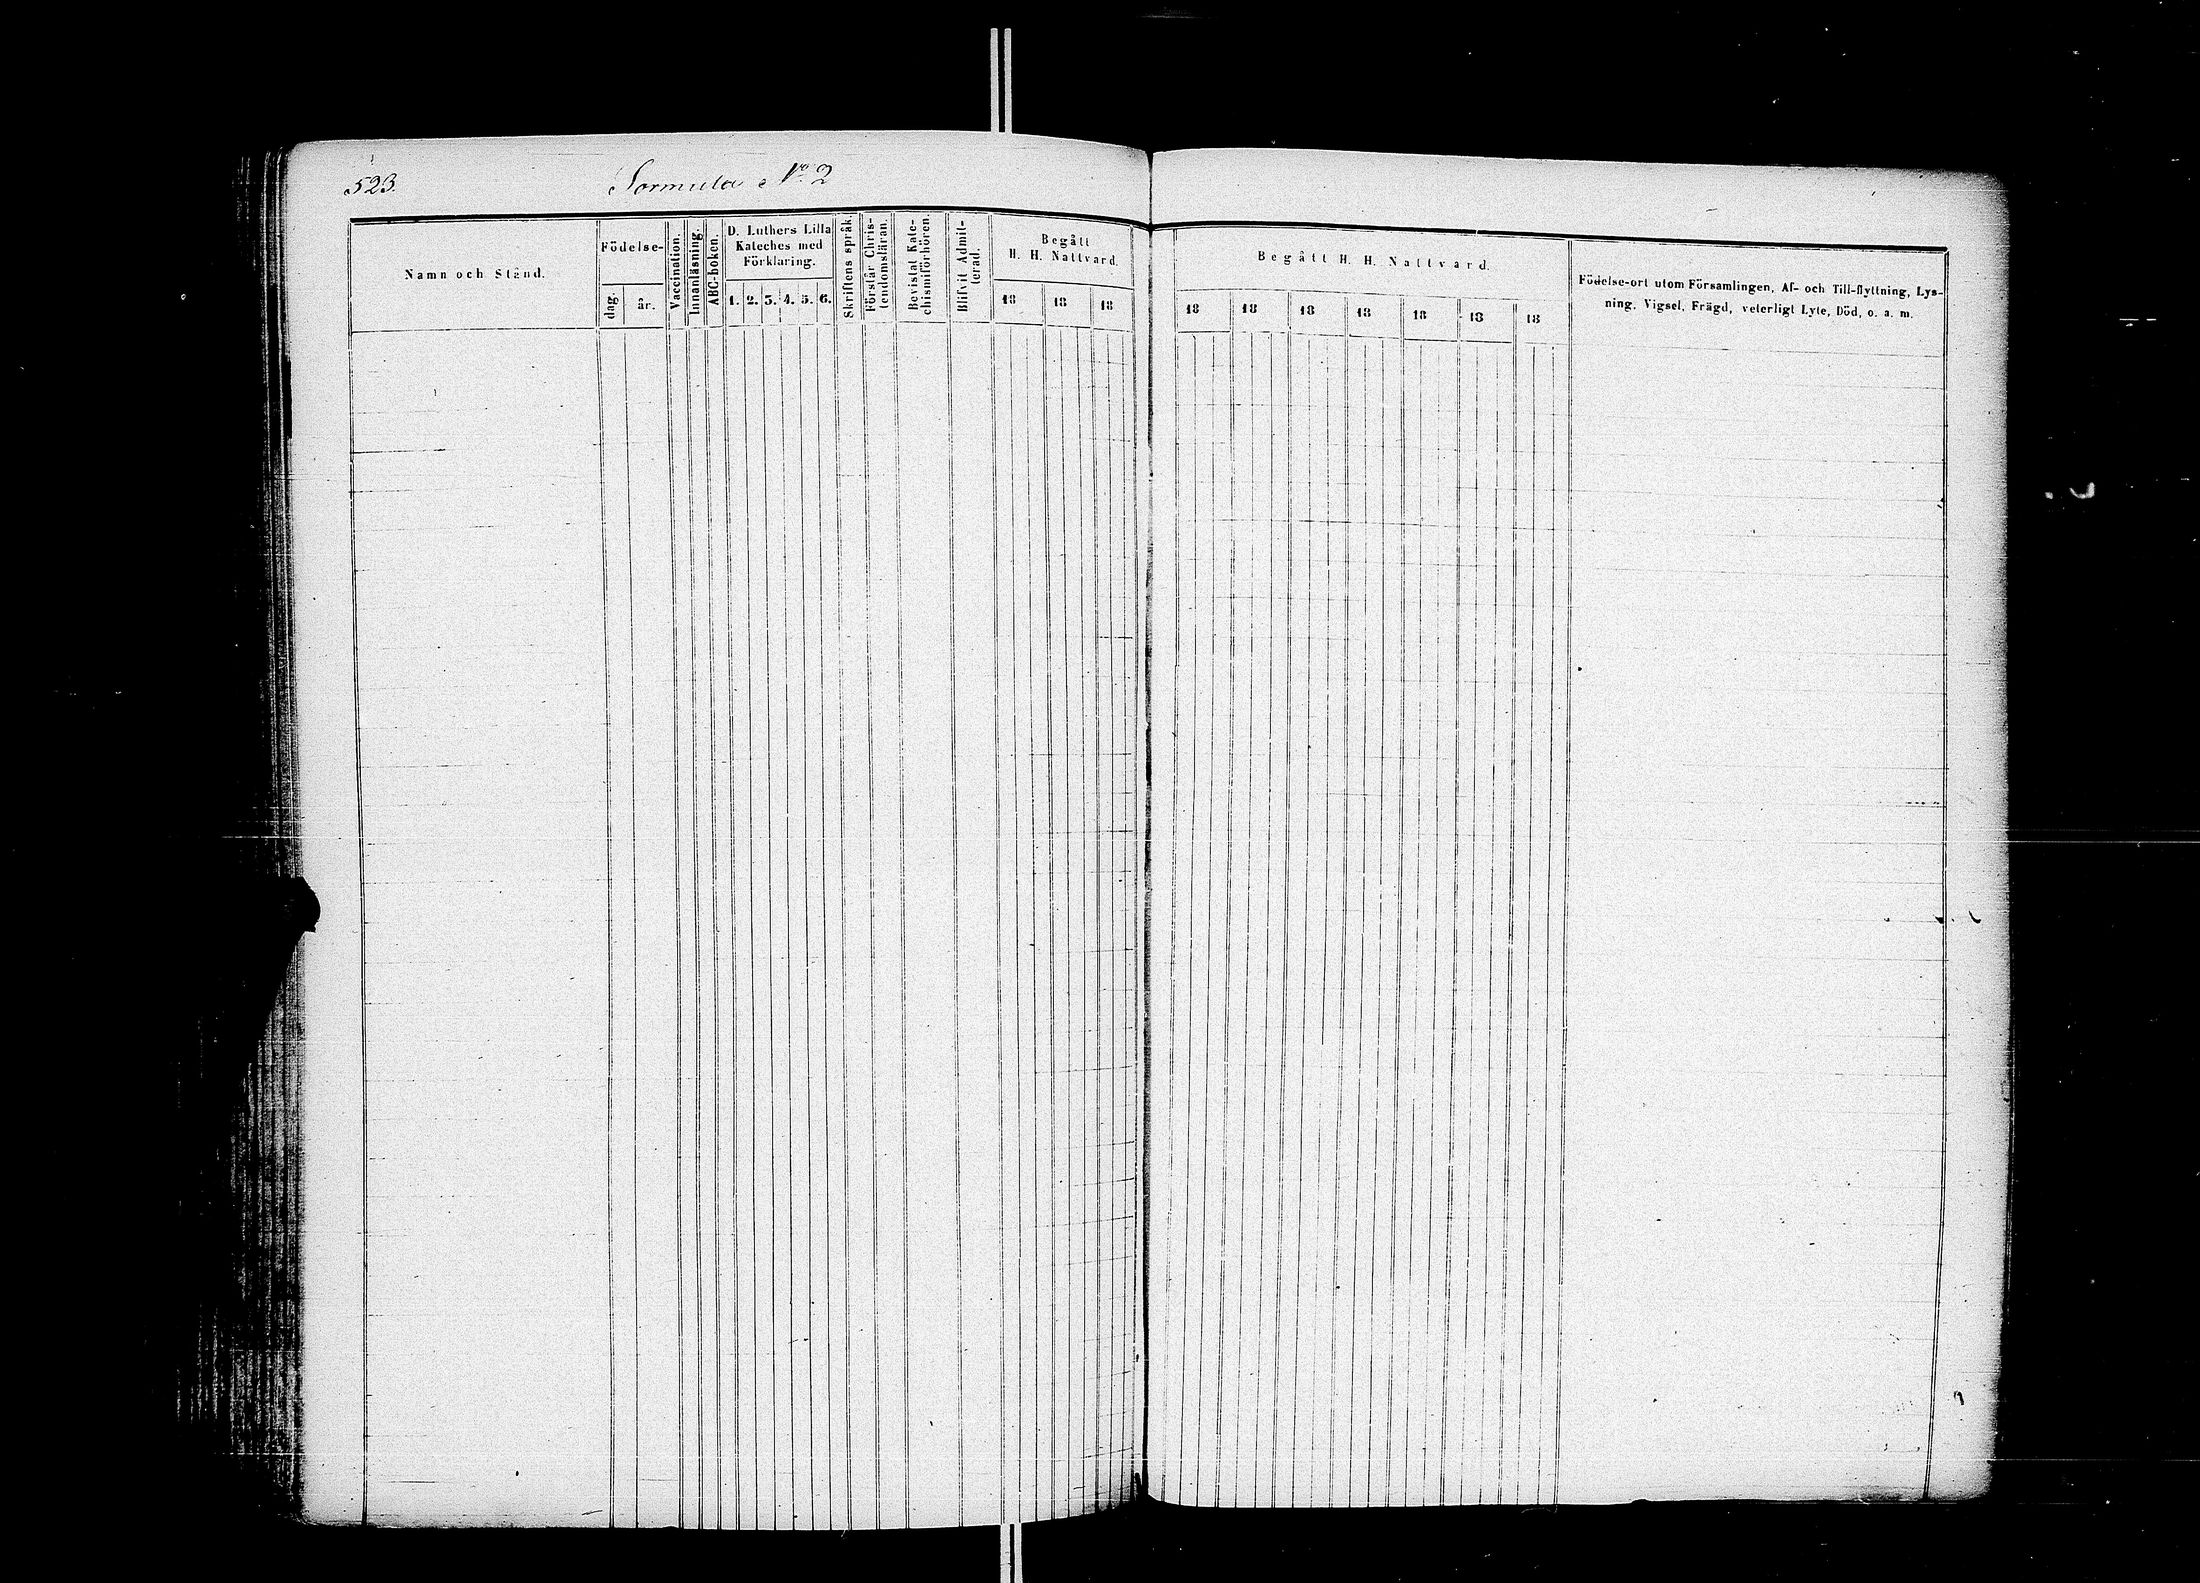 523.
Sormula No 2
Namn och Stånd.
Födelse-
dag.
år.
Vaccination.
Innanläsning.
ABC-boken.
D. Luthers Lilla
Kateches med
Förklaring.
1. 2. 3. 4. 5. 6.
Skriftens språk.
Förstår Chris-
tendomsläran.
Bevistat Kate-
chismiförhören.
Blifvit Admit-
terad.
Begått
H. H. Nattvard.
18 18 18
Begått H. H. Nattvard.
18 18 18 18 18 18 18
Födelse-ort utom Församlingen, Af- och Till-flyttning, Lys-
ning, Vigsel, Frägd, veterligt Lyte, Död, o. a. m.